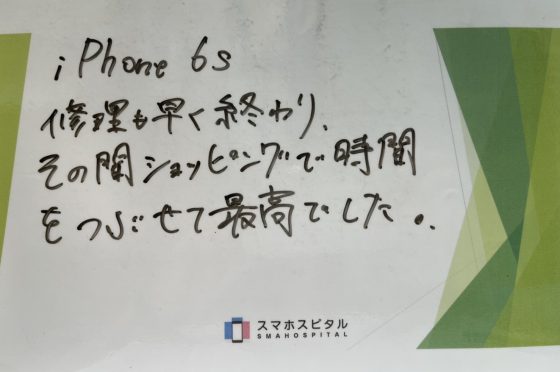 iPhone 6s
修理も早く終わり、
その間ショッピングで時間
をつぶせて最高でした。
スマホスピタル
SMAHOSPITAL